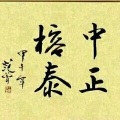 中正
榕泰
甲午年